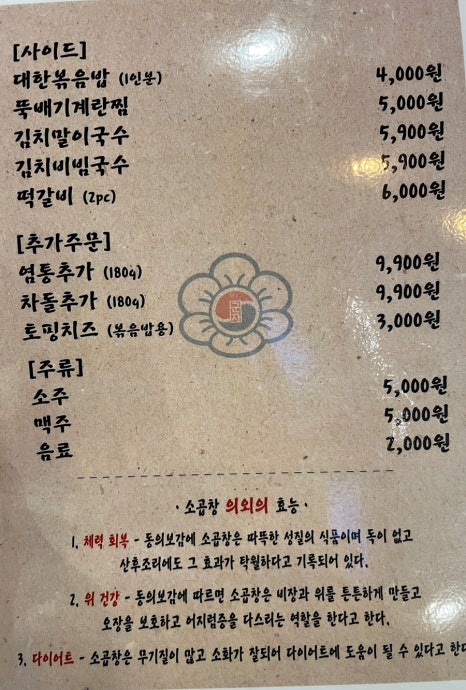 [사이드]
대한볶음밥 (1인분) 4,000원
뚝배기계란찜 5,000원
김치말이국수 5,900원
김치비빔국수 5,900원
떡갈비 (2pc) 6,000원
[추가주문]
염통추가 (180g) 9,900원
차돌추가 (180g) 9,900원
토핑치즈 (볶음밥용) 3,000원
[주류]
소주 5,000원
맥주 5,000원
음료 2,000원
· 소곱창 의외의 효능 ·
1. 체력 회복 - 동의보감에 소곱창은 따뜻한 성질의 식품이며 독이 없고
산후조리에도 그 효과가 탁월하다고 기록되어 있다.
2. 위 건강 - 동의보감에 따르면 소곱창은 비장과 위를 튼튼하게 만들고
오장을 보호하고 어지럼증을 다스리는 역할을 한다고 한다.
3. 다이어트 - 소곱창은 무기질이 많고 소화가 잘되어 다이어트에 도움이 될 수 있다고 한다